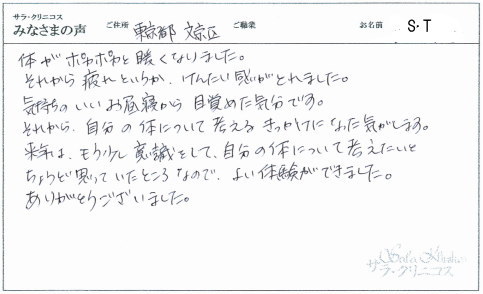 サラ・クリニコス
みなさまの声 ご住所 東京都 文京区 ご職業 お名前 S・T
体がポカポカと暖くなりました。
それから疲れというか、けんたい感がとれました。
気持ちのいいお昼寝から目覚めた気分です。
それから、自分の体について考えるきっかけになった気がします。
来年は、もう少し意識をして、自分の体について考えたいと
ちょうど思っていたところなので、よい体験ができました。
ありがとうございました。
サラ・クリニコス